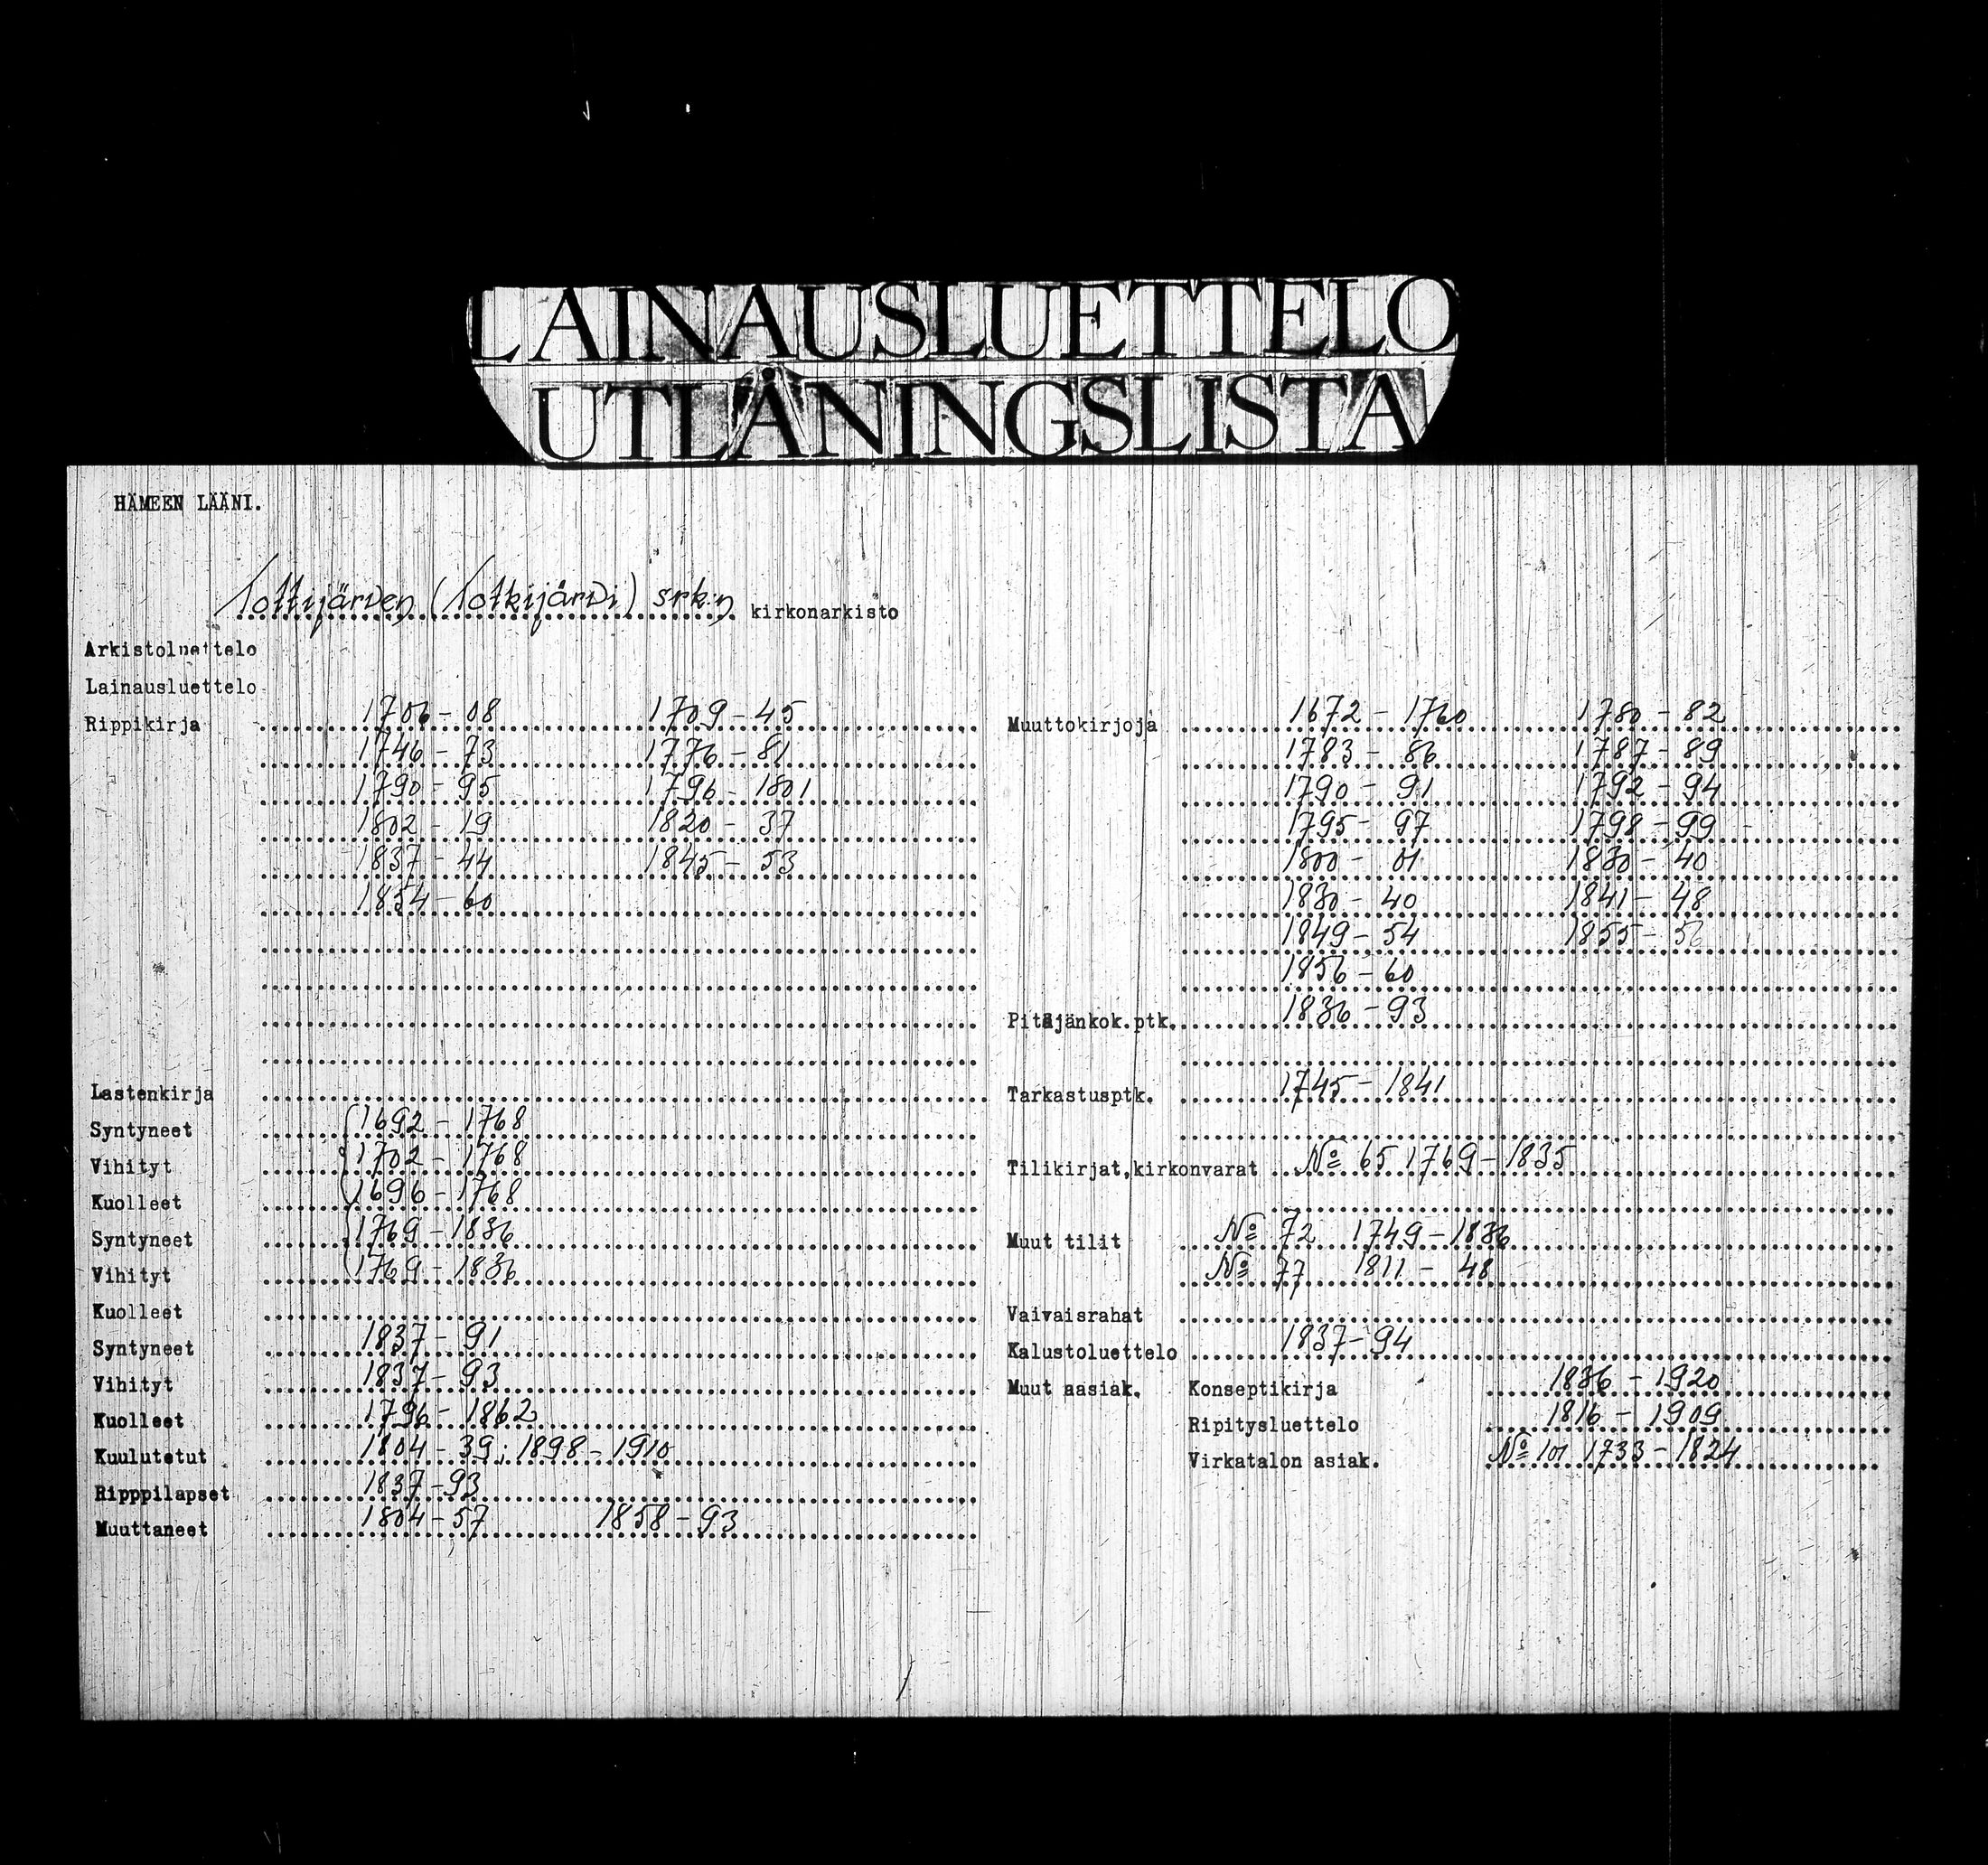 LAINAUSLUETTELO
UTLÅNINGSLISTA
HÄMEEN LÄÄNI.
Tottijärven (Totkijärvi) srk:n kirkonarkisto
Arkistoluettelo
Lainausluettelo
Rippikirja 1706-08 1709-45
1746-73 1776-81
1790-95 1796-1801
1802-19 1820-37
1837-44 1845-53
1854-60
Lastenkirja
Syntyneet 1692-1768
Vihityt 1702-1768
Kuolleet 1696-1768
Syntyneet 1769-1836
Vihityt 1769-1836
Kuolleet
Syntyneet 1837-91
Vihityt 1837-93
Kuolleet 1796-1862
Kuulutetut 1804-39; 1898-1910
Ripppilapset 1837-93
Muuttaneet 1804-57 1858-93
Muuttokirjoja 1672-1760 1780-82
1783-86 1787-89
1790-91 1792-94
1795-97 1798-99
1800-01 1830-40
1830-40 1841-48
1849-54 1855-56
1856-60
Pitäjänkok.ptk. 1836-93
Tarkastusptk. 1745-1841
Tilikirjat,kirkonvarat No 65 1769-1835
Muut tilit No 72 1749-1836
No 77 1811-48
Vaivaisrahat
Kalustoluettelo 1837-94
Muut aasiak. Konseptikirja 1836-1920
Ripitysluettelo 1816-1909
Virkatalon asiak. No 101 1733-1824